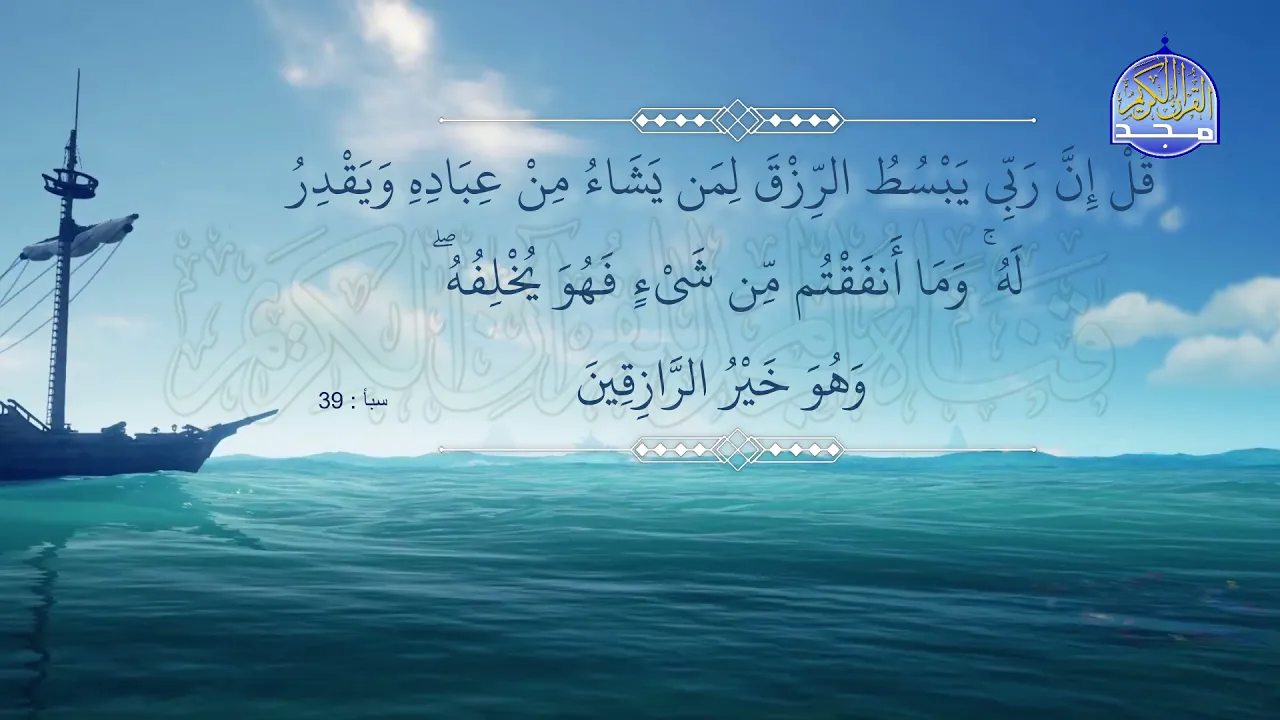 القرآن الكريم
مجد
قُلْ إِنَّ رَبِّي يَبْسُطُ الرِّزْقَ لِمَن يَشَاءُ مِنْ عِبَادِهِ وَيَقْدِرُ
لَهُ ۚ وَمَا أَنفَقْتُم مِّن شَىْءٍ فَهُوَ يُخْلِفُهُ ۖ
وَهُوَ خَيْرُ الرَّازِقِينَ
سبأ : 39
قناة مجد القرآن الكريم